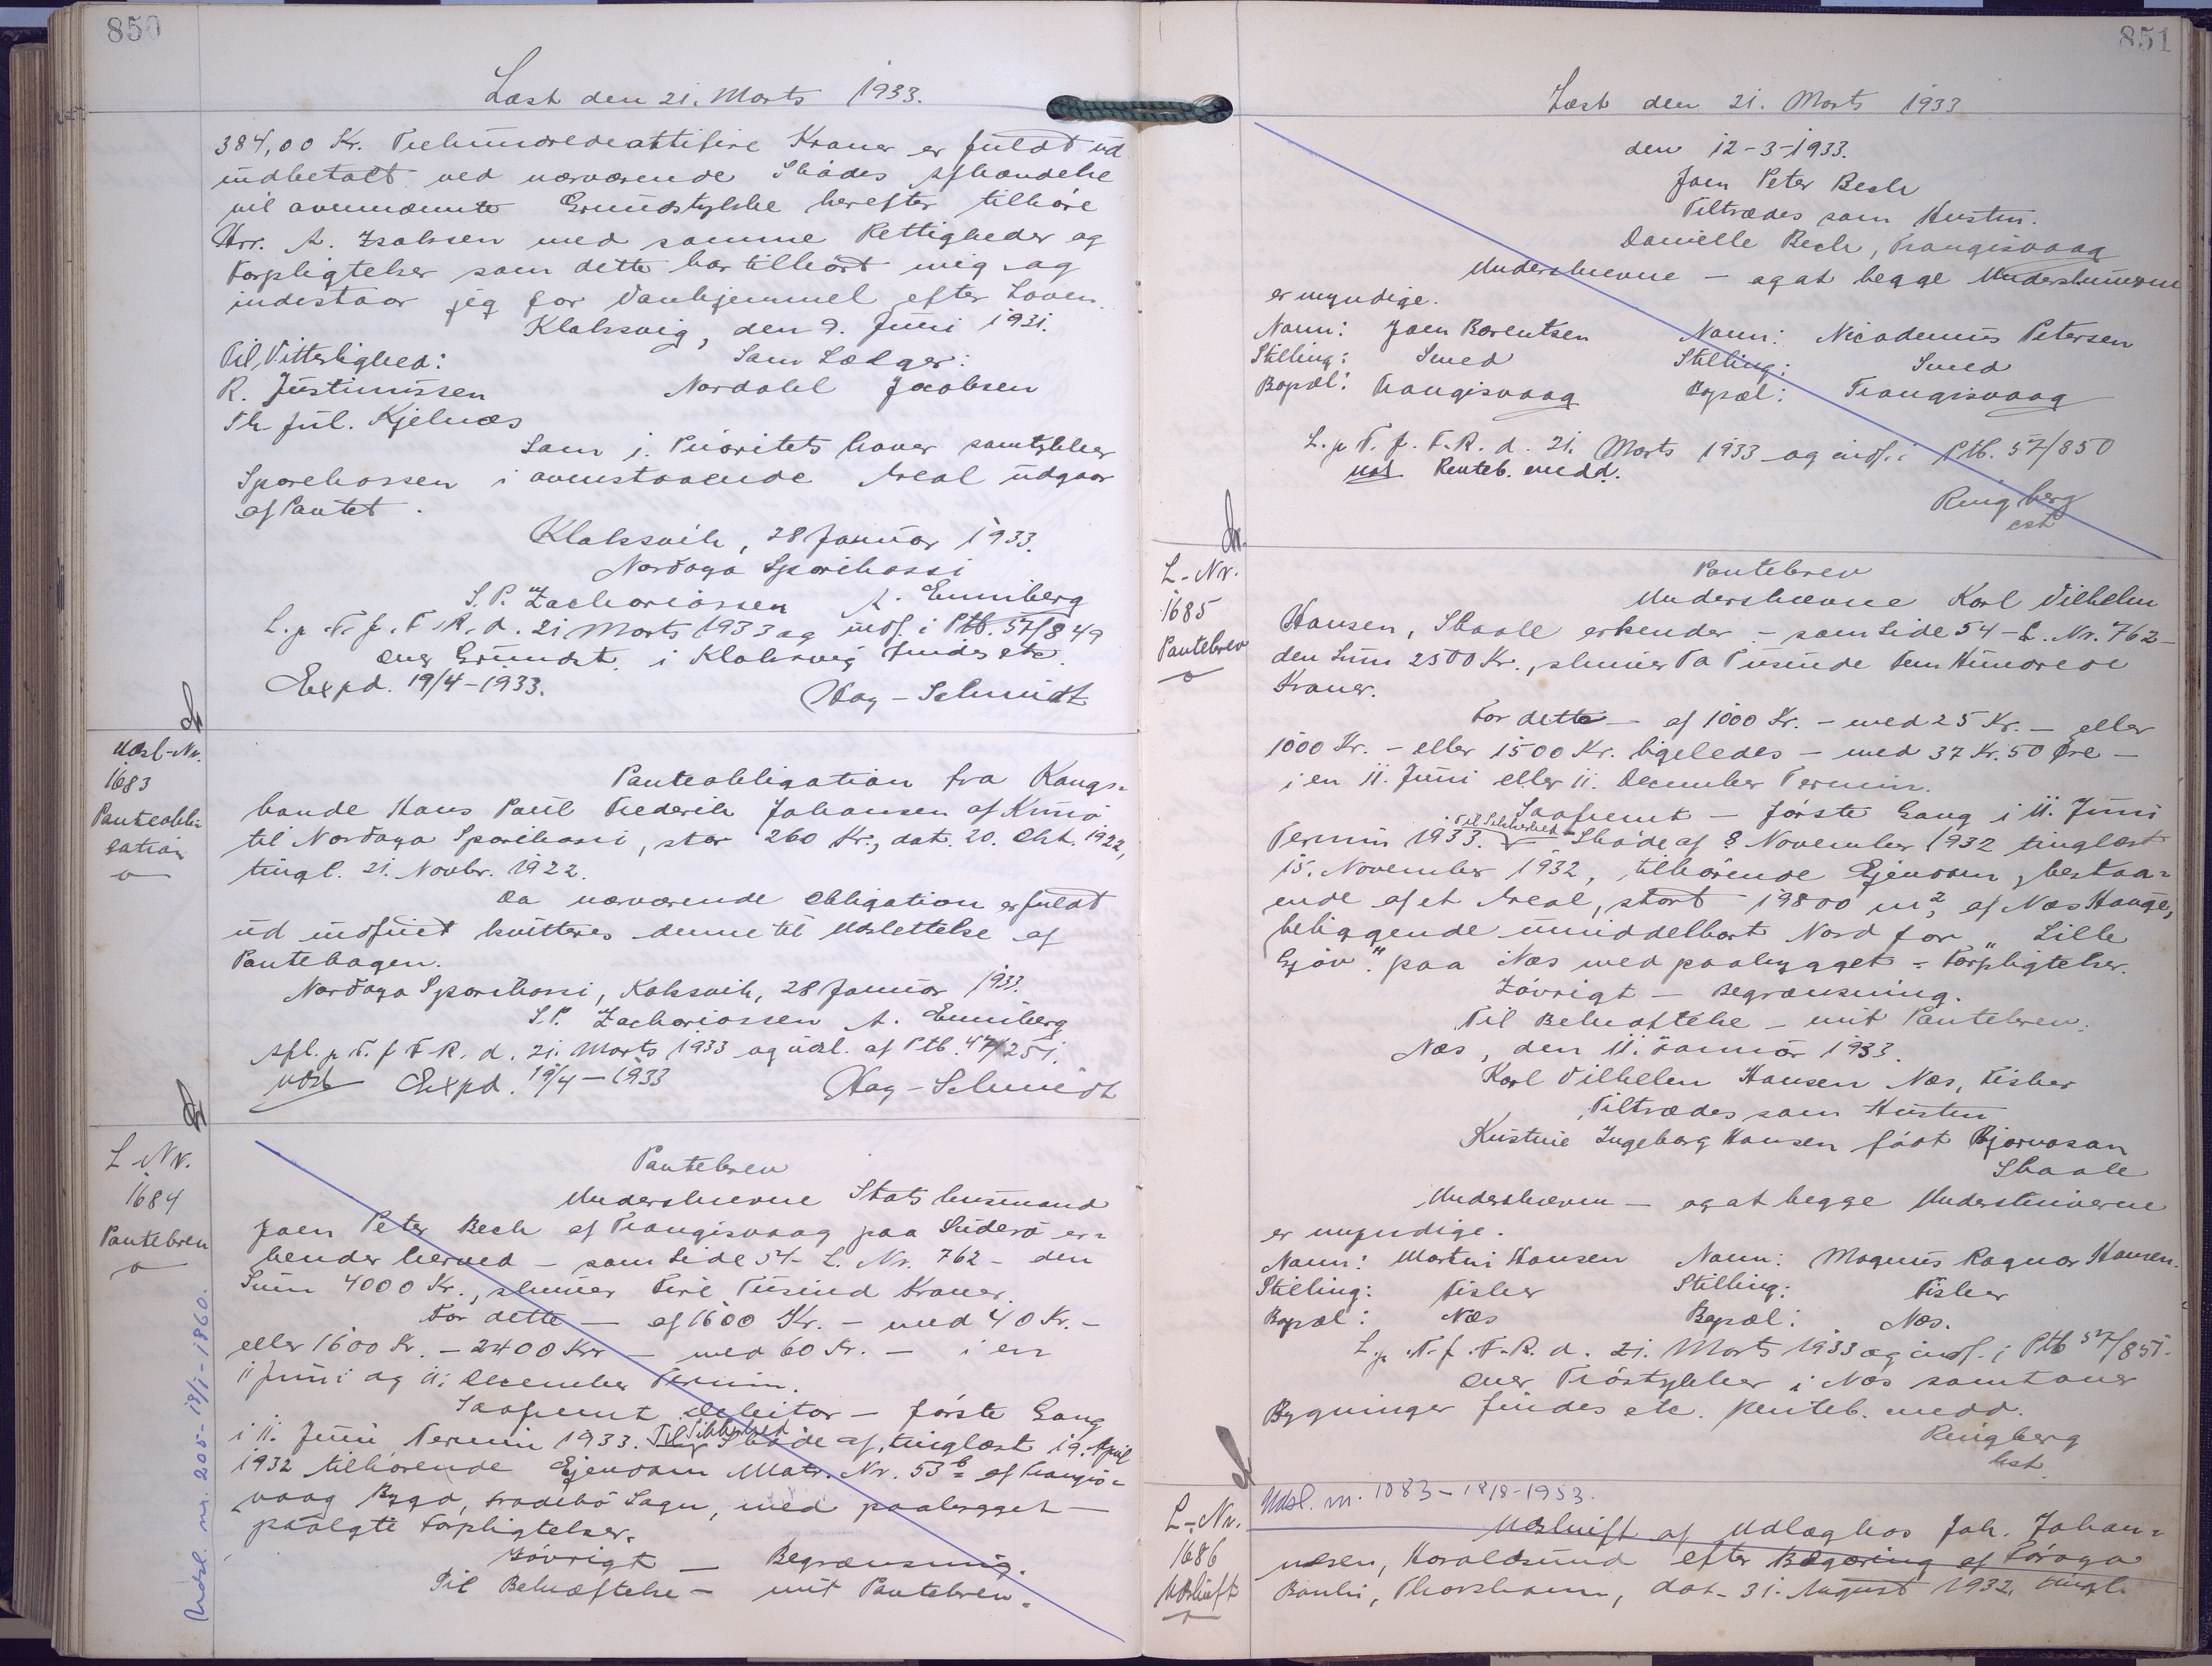 850
Læst den 21. Marts 1933.
384,00 Kr. Trehundredeottifire Kroner er fuldt ud
indbetalt ved nærværende Skødes Afhændelse
vil ovennævnte Grundstykke herefter tilhøre
Hrr. A. Isaksen med samme Rettigheder og
Forpligtelser som dette har tilhørt mig og
indestaar jeg for Vanhjemmel efter Loven.
Klaksvig, den 9. Juni 1931.
Til Vitterlighed: Som Sælger:
R. Justinussen Nordahl Jacobsen
Th Jul. Kjelnæs
Som 1. Prioritets haver samtykker
Sparekassen i ovenstaaende Areal udgaar
af Pantet.
Klaksvik, 28 Januar 1933.
Nordoya Sparikassi
S.P. Zachariassen A. Enniberg
L. p. T. f. F. R. d. 21 Marts 1933 og indf. i Ptb. 57/849
Over Grundst. i Klaksvig findes etc.
Expd. 19/4-1933. Hag-Schmidt
Udsl-Nr.
1683
Panteobli-
gation
Panteobligation fra Kongs-
bonde Hans Paul Frederik Johansen af Kunø
til Nordoya Sparikassi, stor 260 Kr., dat. 20. Okt. 1922,
tingl. 21. Novbr. 1922.
Da nærværende Obligation er fuldt
ud indfriet kvitteres denne til Udslettelse af
Pantebogen.
Nordoya Sparikassi, Kaksvik, 28 Januar 1933.
S.P. Zachariassen A. Enniberg
Afl. p T. f F R. d. 21. Marts 1933 og udsl. af Ptb. 47/251.
udst Expd. 19/4-1933 Hag-Schmidt
L Nr.
1684
Pantebrev
Pantebrev
Underskrevne Stats husmand
Joen Peter Bech af Trangisvaag paa Suderø er-
kender herved – som Side 54- L. Nr. 762 – den
Sum 4000 Kr., skriver Fire Tusind Kroner.
For dette – af 1600 Kr. – med 40 Kr. –
eller 1600 Kr. – 2400 Kr – med 60 Kr. – i en
11 Juni og 11. December Termin.
Saafremt Debitor – første Gang
i 11. Juni Termin 1933. Til Sikkerhed Skøde af, tinglæst 19. April
1932 tilhørende Ejendom Matr. Nr. 53b af Trangis-
vaag Bygd, Frodebø Sogn, med paabygget –
paalgte Forpligtelser.
Iøvrigt – Begrænsning.
Til Bekræftelse – mit Pantebrev.
Udsl. nr. 205-18/1-1960.
851
Læst den 21. Marts 1933
den 12-3-1933.
Joen Peter Bech
Tiltrædes som Hustru.
Danielle Bech, Trangisvaag
Underskrevne – og at begge Underskriverne
er myndige.
Navn: Joen Berentsen Navn: Nicodemus Petersen
Stilling: Smed Stilling: Smed
Bopæl: Trangisvaag Bopæl: Trangisvaag
L. p T. f. F. R. d. 21. Marts 1933 og indf. i Ptb. 57/850
Renteb. medd.
Ringberg
cst
L-Nr.
1685
Pantebrev
Pantebrev
Underskrevne Karl Vilhelm
Hansen, Skaale erkender – som Side 54 – L. Nr. 762 –
den Sum 2500 Kr., skriver To Tusinde Fem Hundrede
Kroner.
For dette – af 1000 Kr. – med 25 Kr. – eller
1000 Kr. – eller 1500 Kr. ligeledes – med 37 Kr. 50 Øre –
i en 11. Juni eller 11. December Termin.
Saafremt – første Gang i 11. Juni
Termin 1933. Til Sikkerhed – Skøde af 8 November 1932 tinglæst
15. November 1932, tilhørende Ejendom, bestaa-
ende af et Areal, stort 19800 m², af Næs Hauge,
beliggende umiddelbart Nord for "Lille
Gjov" paa Næs med paabygget – Forpligtelser.
Iøvrigt – Begrænsning.
Til Bekræftelse – mit Pantebrev.
Næs, den 11. Januar 1933.
Karl Vilhelm Hansen Næs, Fisker
Tiltrædes som Hustru
Kristine Ingeborg Hansen født Bjarvasan
Skaale
Underskreven – og at begge Underskriverne
er myndige.
Navn: Martin Hansen Navn: Magnus Ragnar Hansen.
Stilling: Fisker Stilling: Fisker
Bopæl: Næs Bopæl: Næs.
L. p. T. f. F. R. d. 21. Marts 1933 og indf. i Ptb 57/851.
Over Trøstykker i Næs samt over
Bygninger findes etc. Renteb. medd.
Ringberg
cst.
L-Nr.
1686
Udskrift
Udsl. nr. 1083-18/8-1953.
Udskrift af Udlæg hos Joh. Johan-
nesen, Haraldsund efter Begæring af Føroya
Banki, Thorshavn, dat. 31. August 1932. tingl.